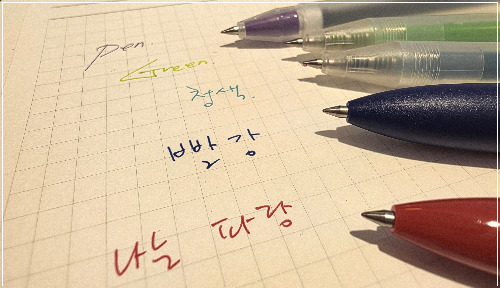 Pen.
Green
청색.
빨강
나는 파랑